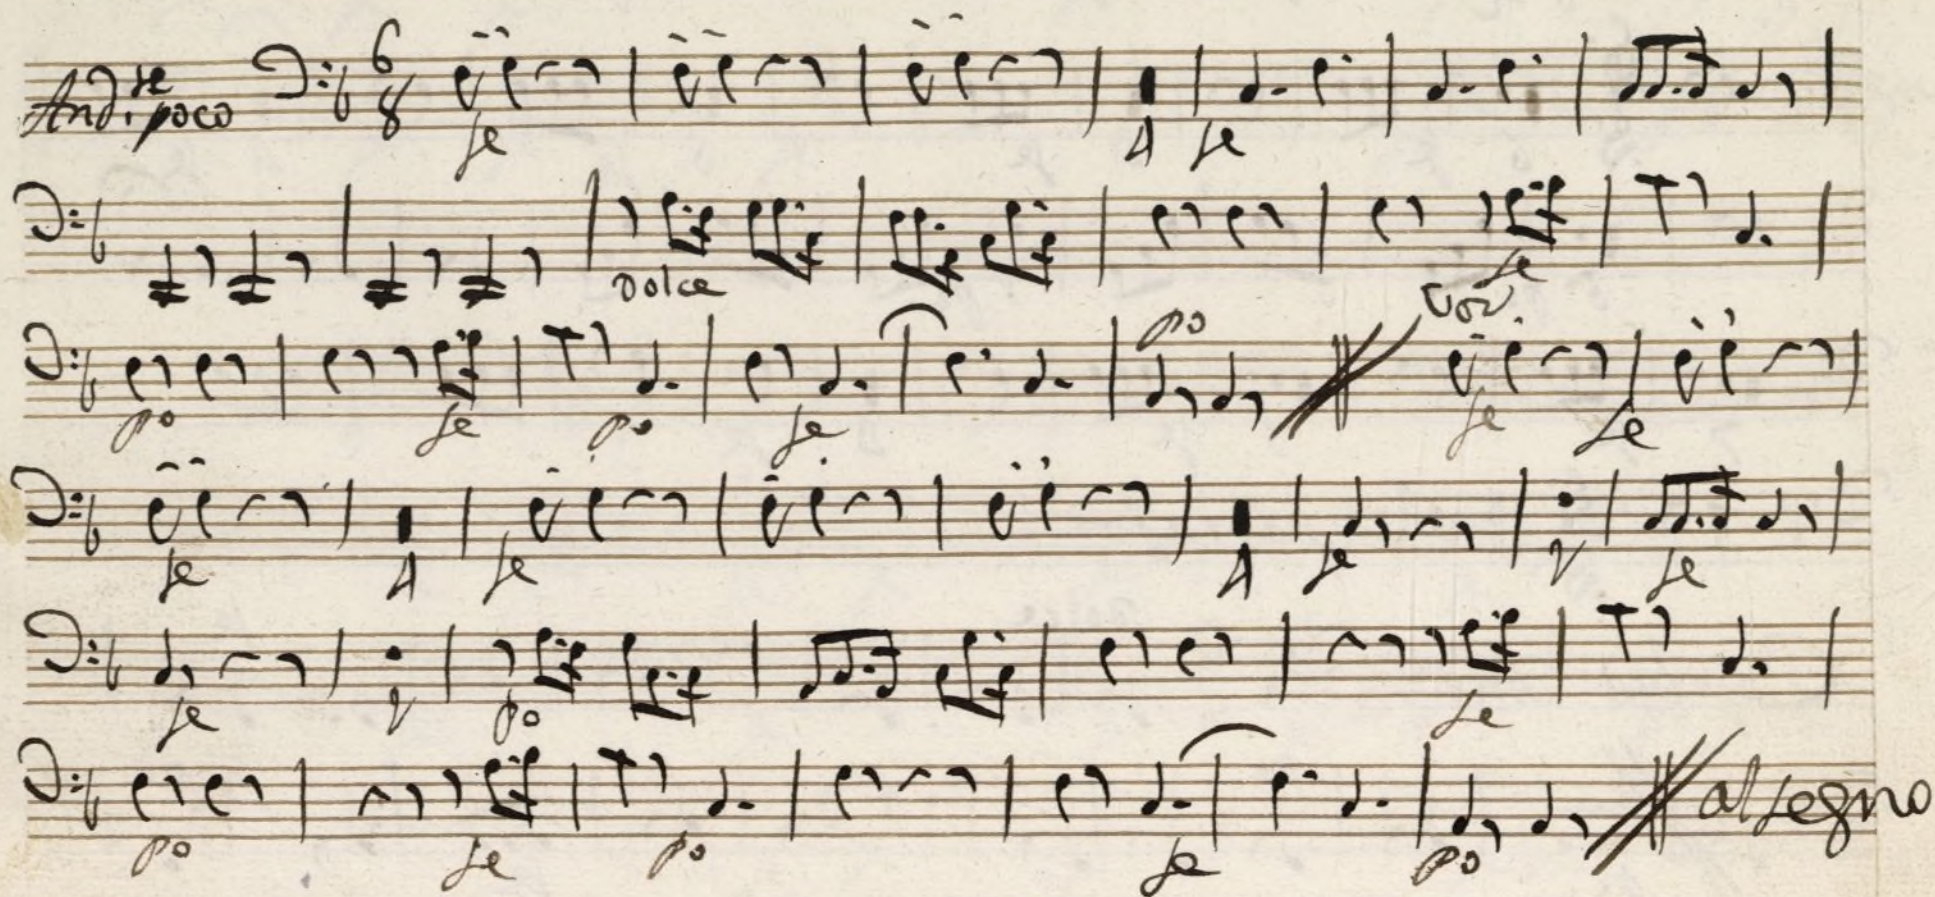 And.te poco 6 8 fe 4 fe
Dolce fe
po fe po fe po Voi fe fe
fe 4 fe 4 fe 2 fe
fe 2 po fe
po fe po fe po al segno